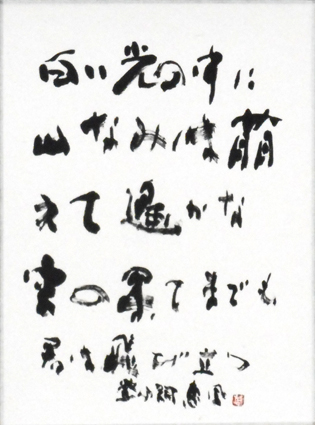 白い光の中に
山なみは萌
えて遥かな
空の果てまでも
君は飛び立つ